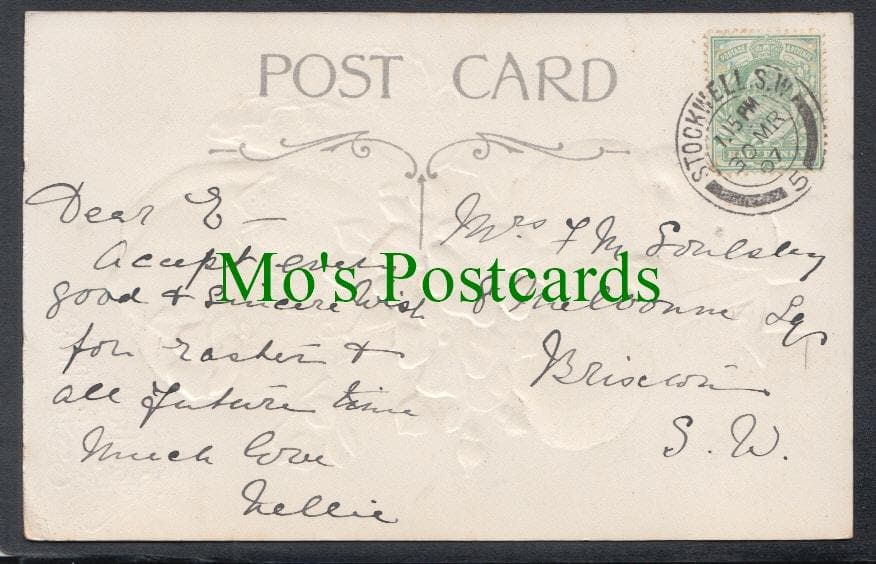 POST CARD
STOCKWELL S.W.
1.15 PM
30 MR
07
5
Dear E —
Accept every
good & sincere wish
for Easter &
all future time
Much love
Nellie
Mrs F M Soulsby
8 Melbourne Sq
Brixton
S. W.
Mo's Postcards